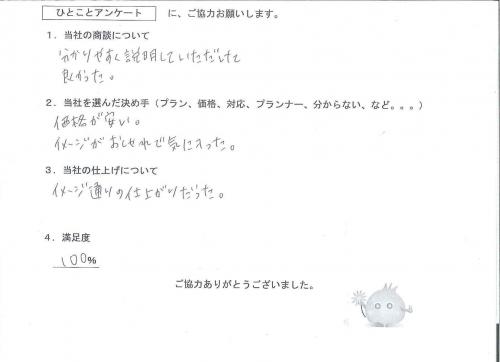 ひとことアンケート に、ご協力お願いします。
1．当社の商談について
分かりやすく説明していただけて
良かった。
2．当社を選んだ決め手（プラン、価格、対応、プランナー、分からない、など。。。）
価格が安い。
イメージがおしゃれで気に入った。
3．当社の仕上げについて
イメージ通りの仕上がりだった。
4．満足度
100%
ご協力ありがとうございました。